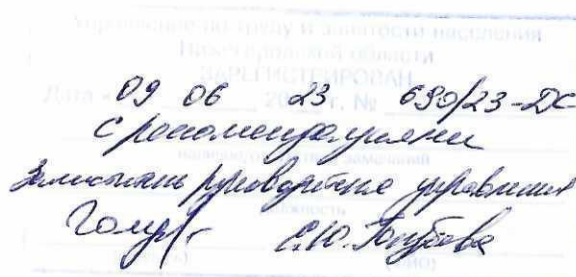 Управление по труду и занятости населения
Нижегородской области
ЗАРЕГИСТРИРОВАН
Дата « 09 06 20 23 г. № 690/23-ДС
с рекомендациями
замечаний
Заместитель руководителя управления
должность
С.Ю.
(ФИО)